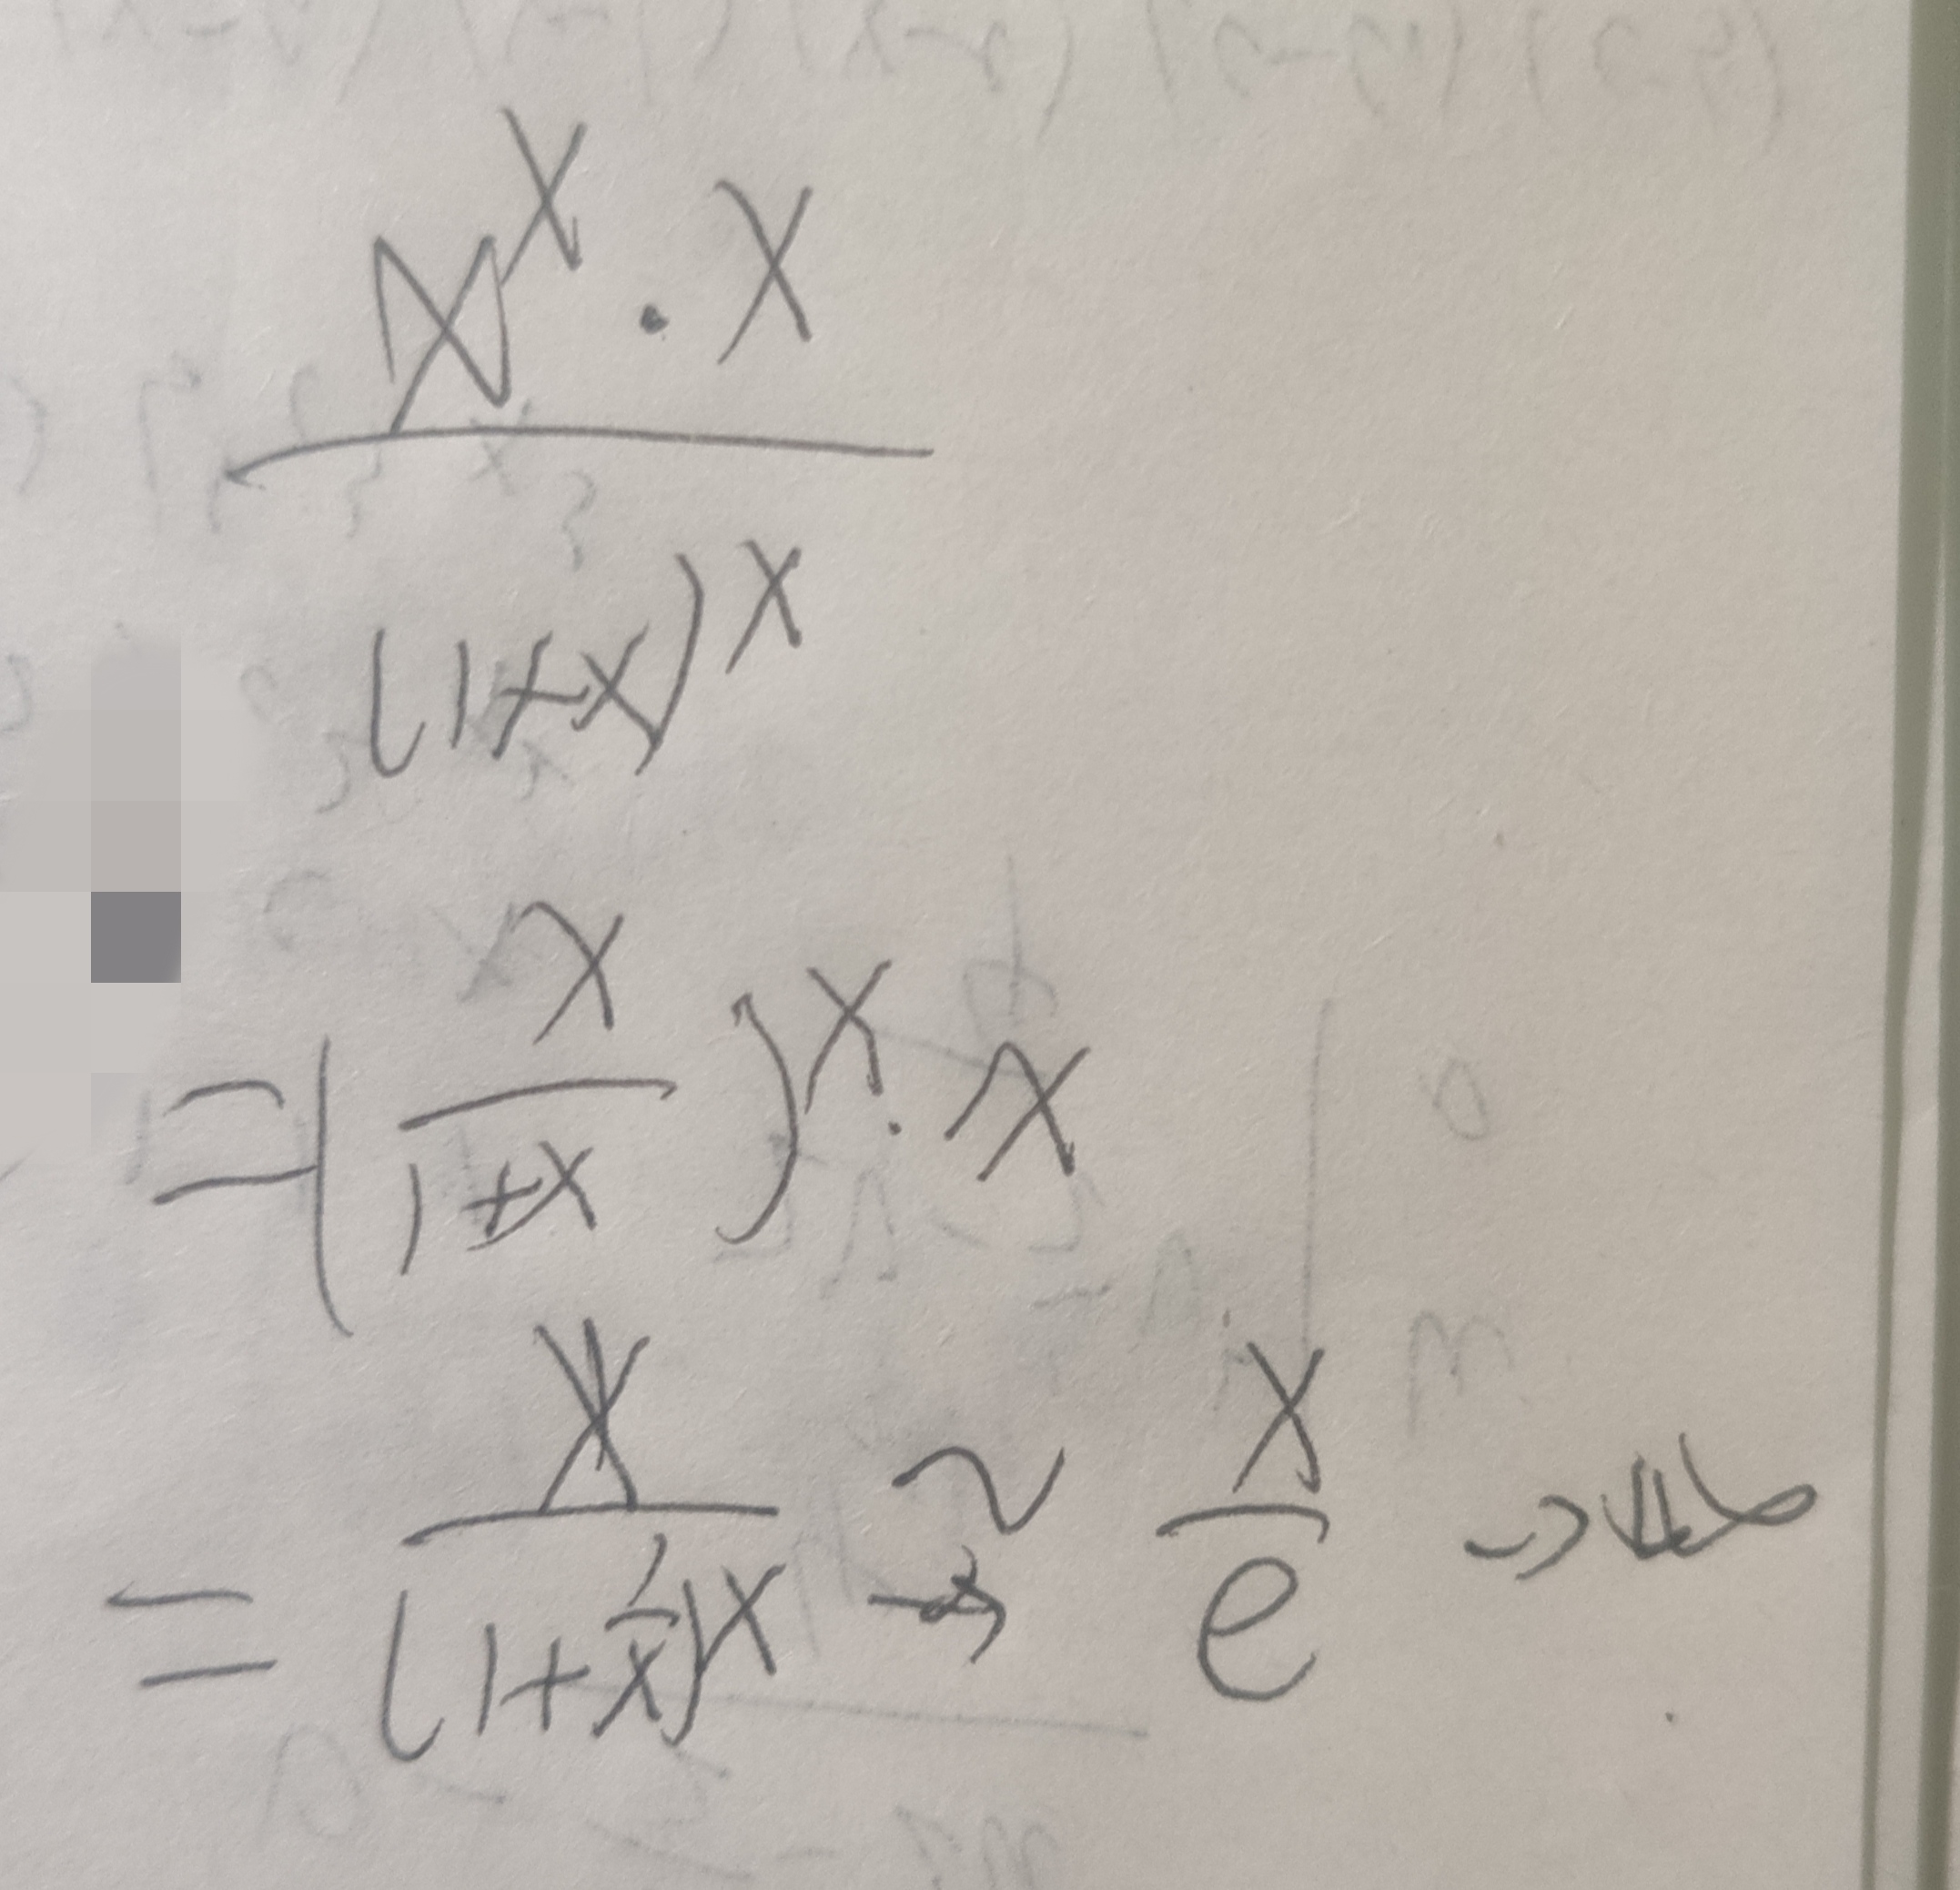 x^x · x
/ (1+x)^x
= (x / (1+x))^x · x
= x / (1+1/x)^x ~ → x / e → +∞